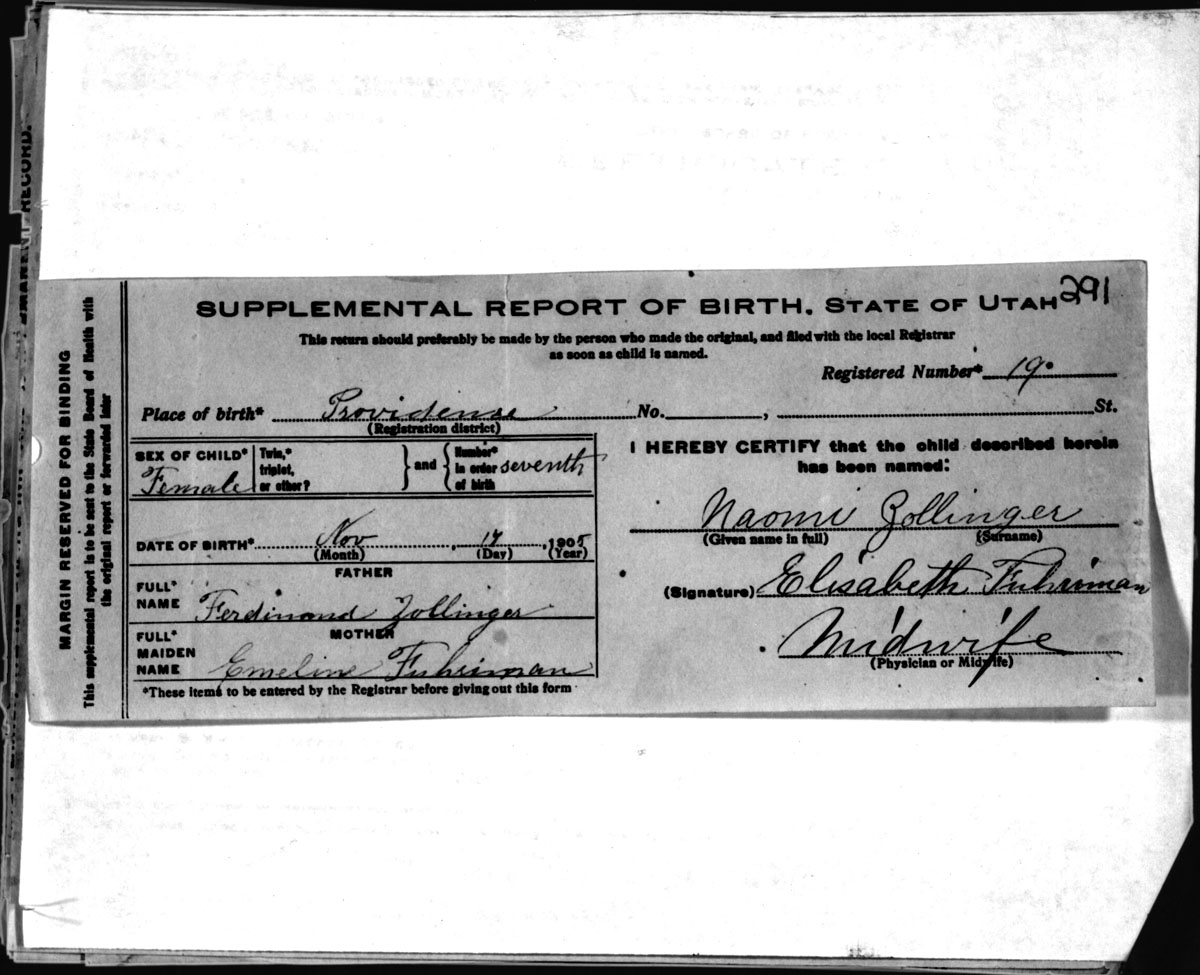 SUPPLEMENTAL REPORT OF BIRTH. STATE OF UTAH 291
This return should preferably be made by the person who made the original, and filed with the local Registrar
as soon as child is named.
Registered Number* 19
Place of birth* Providense No. , St.
(Registration district)
SEX OF CHILD* Female
Twin,*
triplet,
or other?
} and {
Number*
in order seventh
of birth
DATE OF BIRTH* Nov , 17 , 1905
(Month) (Day) (Year)
FATHER
FULL*
NAME Ferdinand Zollinger
MOTHER
FULL*
MAIDEN
NAME Emeline Fuhriman
*These items to be entered by the Registrar before giving out this form
I HEREBY CERTIFY that the child described herein
has been named:
Naomi Zollinger
(Given name in full) (Surname)
(Signature) Elisabeth Fuhriman
Midwife
(Physician or Midwife)
MARGIN RESERVED FOR BINDING
This supplemental report is to be sent to the State Board of Health with
the original report or forwarded later
RECORD.